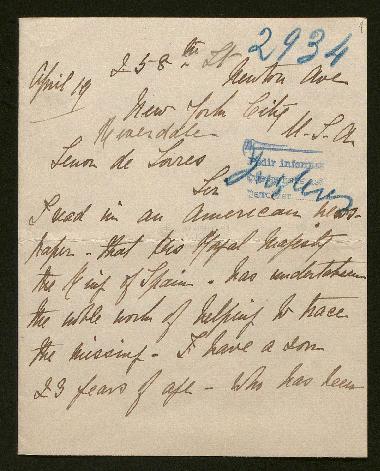 2934
258th St
April 19
Newton Ave
New York City
Riverdale
U.S.A
Senor de Torres
Sir
Pedir informes
I read in an American news-
paper - that His Royal Majesty
the King of Spain - has undertaken
the noble work of helping to trace
the missing - I have a son
23 years of age - who has been